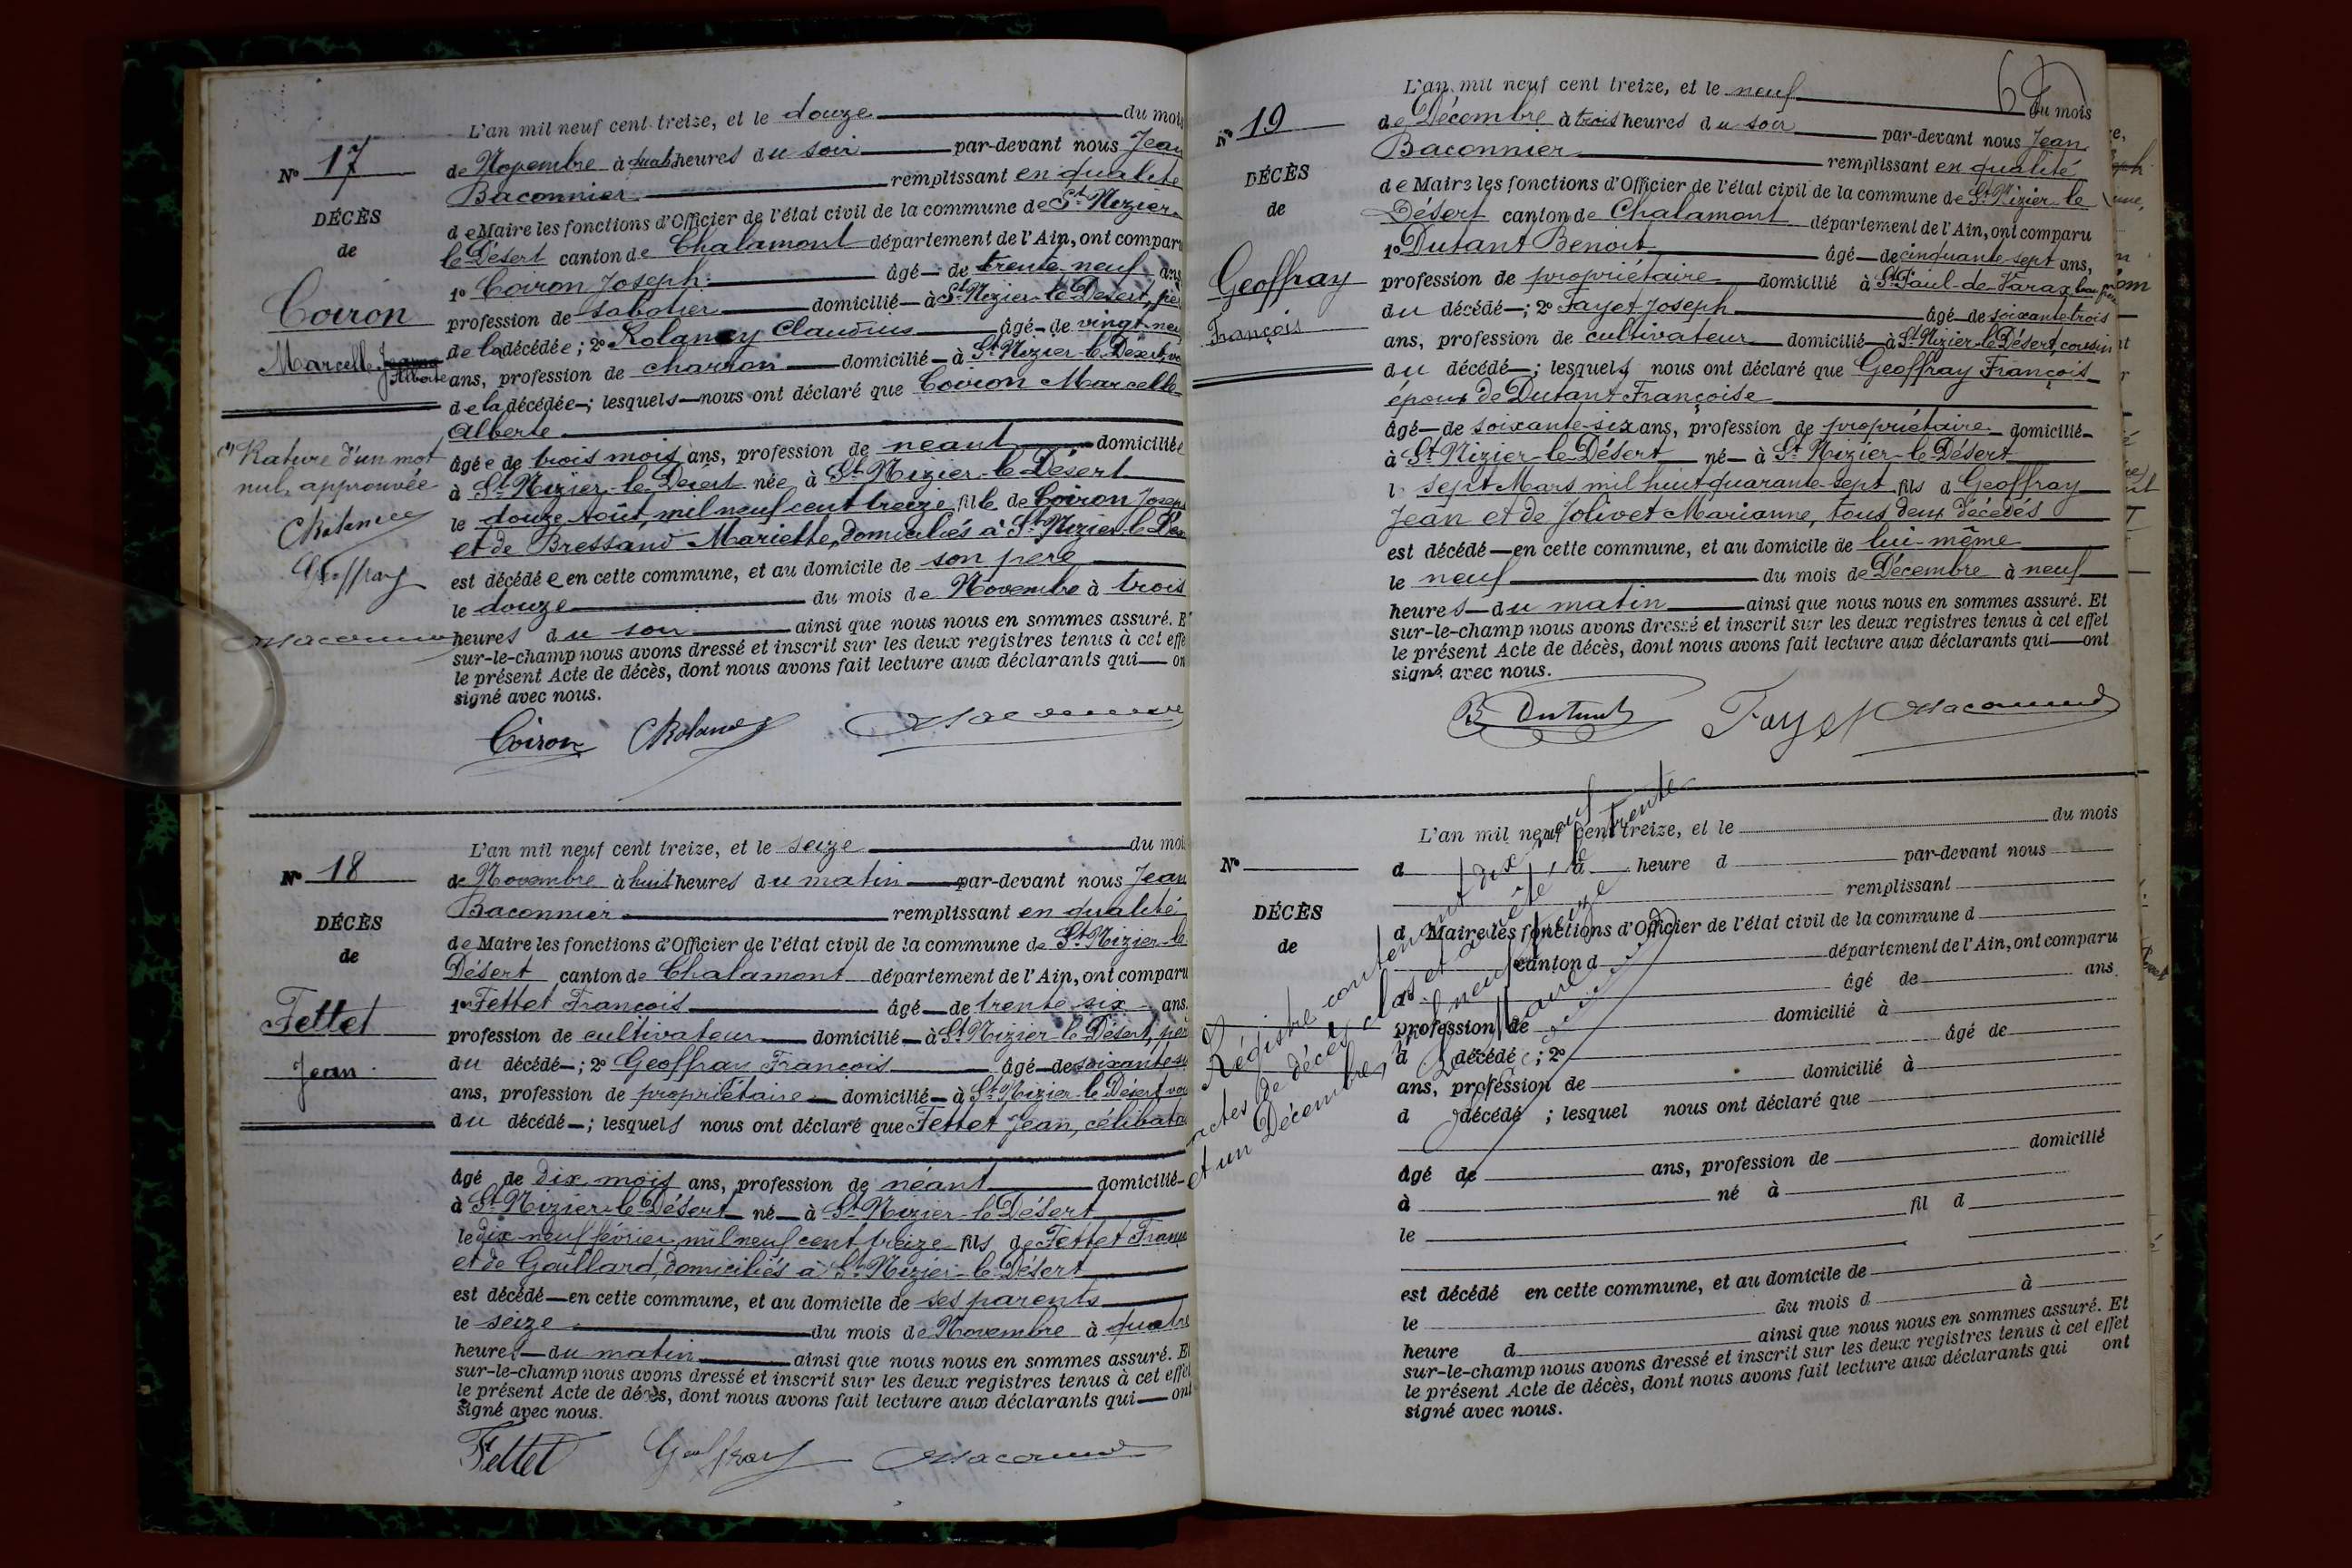 L'an mil neuf cent treize, et le douze du mois
Nº 17
de Novembre à quatre heures du soir par-devant nous Jean
Baconnier remplissant en qualité
DÉCÈS
de Maire les fonctions d'Officier de l'état civil de la commune de St Nizier-
de
le-Désert canton de Chalamont département de l'Ain, ont comparu
1º Coiron Joseph âgé de trente-neuf ans
Coiron
profession de sabotier domicilié à St Nizier-le-Désert, père
de la décédée; 2º Rolancy Claudius âgé de vingt-neuf
Marcelle Jeanne
Alberte
ans, profession de charron domicilié à St Nizier-le-Désert, vo
de la décédée; lesquels nous ont déclaré que Coiron Marcelle
Alberte
(1) Rature d'un mot
nul, approuvée
âgée de trois mois ans, profession de néant domiciliée
à St Nizier-le-Désert née à St Nizier-le-Désert
le douze Août, mil neuf cent treize fille de Coiron Joseph
et de Bressand Mariette, domiciliés à St Nizier-le-Dés
Geoffray
est décédée en cette commune, et au domicile de son père
le douze du mois de Novembre à trois
heures du soir ainsi que nous nous en sommes assuré. Et
sur-le-champ nous avons dressé et inscrit sur les deux registres tenus à cet effet
le présent Acte de décès, dont nous avons fait lecture aux déclarants qui ont
signé avec nous.
Coiron
L'an mil neuf cent treize, et le seize du mois
Nº 18
de Novembre à huit heures du matin par-devant nous Jean
Baconnier remplissant en qualité
DÉCÈS
de Maire les fonctions d'Officier de l'état civil de la commune de St Nizier-le
de
Désert canton de Chalamont département de l'Ain, ont comparu
1º Fettet François âgé de trente-six ans.
Fettet
profession de cultivateur domicilié à St Nizier-le-Désert, père
Jean
du décédé; 2º Geoffray François âgé de soixante-six
ans, profession de propriétaire domicilié à St Nizier-le-Désert, voi
du décédé; lesquels nous ont déclaré que Fettet Jean, célibatai
âgé de dix mois ans, profession de néant domicilié
à St Nizier-le-Désert né à St Nizier-le-Désert
le dix-neuf février, mil neuf cent treize fils de Fettet Franç
et de Gaillard, domiciliés à St Nizier-le-Désert
est décédé en cette commune, et au domicile de ses parents
le seize du mois de Novembre à quatre
heures du matin ainsi que nous nous en sommes assuré. Et
sur-le-champ nous avons dressé et inscrit sur les deux registres tenus à cet effet
le présent Acte de décès, dont nous avons fait lecture aux déclarants qui ont
signé avec nous.
Fettet Geoffray
6
L'an mil neuf cent treize, et le neuf du mois
Nº 19
de Décembre à trois heures du soir par-devant nous Jean
Baconnier remplissant en qualité
DÉCÈS
de Maire les fonctions d'Officier de l'état civil de la commune de St Nizier-le
de
Désert canton de Chalamont département de l'Ain, ont comparu
1º Dutant Benoit âgé de cinquante-sept ans,
Geoffray
profession de propriétaire domicilié à St Paul-de-Varax, beau-frère
du décédé; 2º Fayet Joseph âgé de soixante trois
François
ans, profession de cultivateur domicilié à St Nizier-le-Désert, cousin
du décédé; lesquels nous ont déclaré que Geoffray François
époux de Dutant Françoise
âgé de soixante-six ans, profession de propriétaire domicilié
à St Nizier-le-Désert né à St Nizier-le-Désert
l sept Mars mil huit quarante-sept fils d Geoffray
Jean et de Jolivet Marianne, tous deux décédés
est décédé en cette commune, et au domicile de lui-même
le neuf du mois de Décembre à neuf
heures du matin ainsi que nous nous en sommes assuré. Et
sur-le-champ nous avons dressé et inscrit sur les deux registres tenus à cet effet
le présent Acte de décès, dont nous avons fait lecture aux déclarants qui ont
signé avec nous.
B Dutant Fayet
L'an mil neuf cent treize, et le du mois
Nº
d à heure d par-devant nous
remplissant
DÉCÈS
d Maire les fonctions d'Officier de l'état civil de la commune d
de
canton d département de l'Ain, ont comparu
1º âgé de ans
profession de domicilié à
d décédé ; 2º âgé de
ans, profession de domicilié à
d décédé ; lesquel nous ont déclaré que
âgé de ans, profession de domicilié
à né à
le fil d
est décédé en cette commune, et au domicile de
le du mois d à
heure d ainsi que nous nous en sommes assuré. Et
sur-le-champ nous avons dressé et inscrit sur les deux registres tenus à cet effet
le présent Acte de décès, dont nous avons fait lecture aux déclarants qui ont
signé avec nous.
Régistre contenant dix-neuf
actes de décès, clos et arrêté, le trente
et un Décembre, mil neuf treize
Le Maire